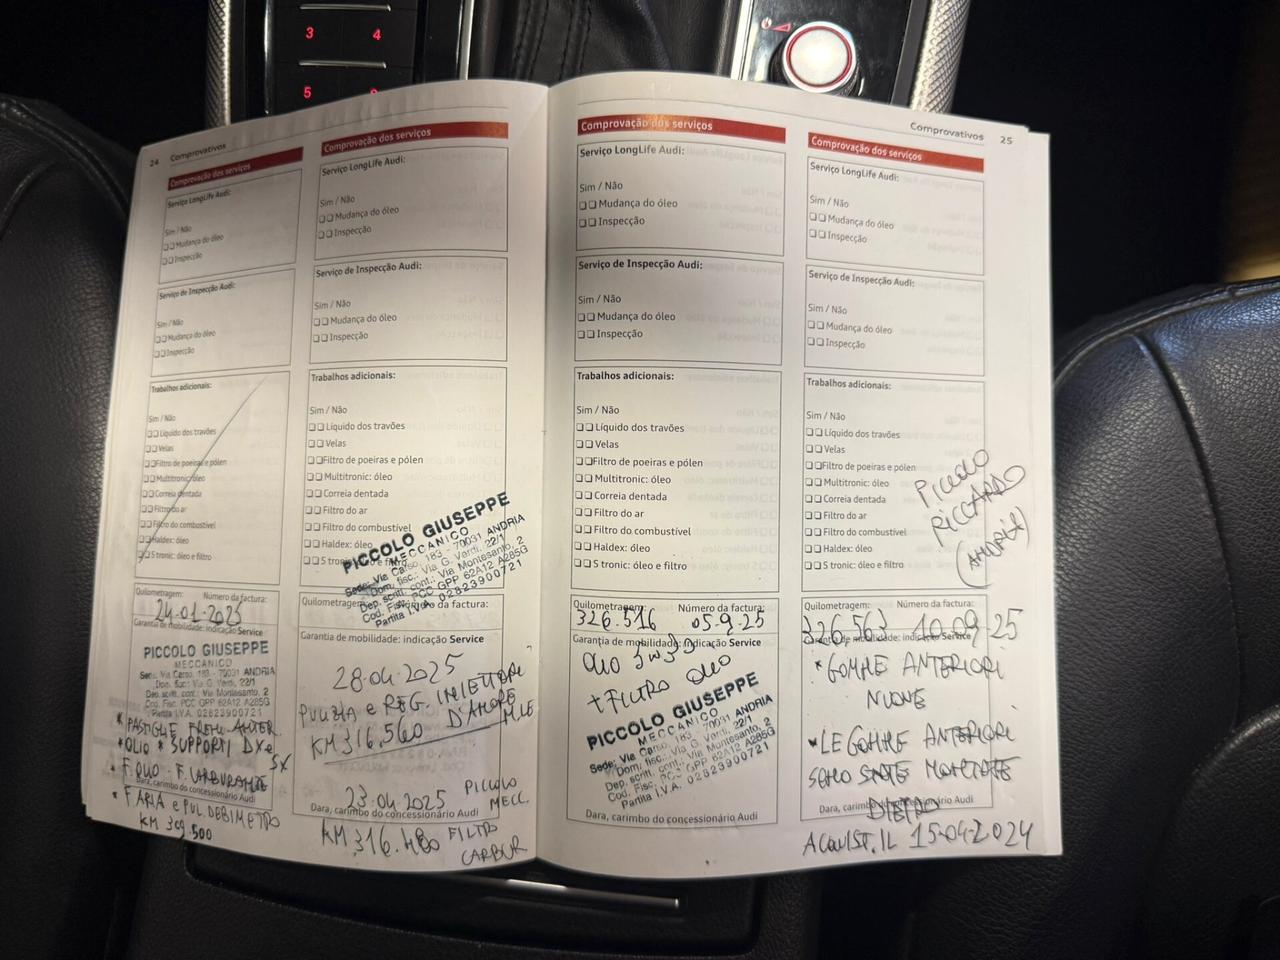 3 4
5
24 Comprovativos
Comprovação dos serviços
Serviço LongLife Audi:
Sim / Não
Mudança do óleo
Inspecção
Serviço de Inspecção Audi:
Sim / Não
Mudança do óleo
Inspecção
Trabalhos adicionais:
Sim / Não
Líquido dos travões
Velas
Filtro de poeiras e pólen
Multitronic: óleo
Correia dentada
Filtro do ar
Filtro do combustível
Haldex: óleo
S tronic: óleo e filtro
Quilometragem: Número da factura:
24-01-2025
Garantia de mobilidade: indicação Service
PICCOLO GIUSEPPE
MECCANICO
Sede: Via Carso, 183 - 70031 ANDRIA
Dom. fisc.: Via G. Verdi, 22/1
Dep. scritt. cont.: Via Montesanto, 2
Cod. Fisc. PCC GPP 62A12 A285G
Partita I.V.A. 02823900721
* PASTIGLIE FRENI ANTER.
* OLIO * SUPPORTI DX e SX
* F. OLIO - F. CARBURANTE
Dara, carimbo do concessionário Audi
* F ARIA e PUL. DEBIMETRO
KM 309.500
Comprovação dos serviços
Serviço LongLife Audi:
Sim / Não
Mudança do óleo
Inspecção
Serviço de Inspecção Audi:
Sim / Não
Mudança do óleo
Inspecção
Trabalhos adicionais:
Sim / Não
Líquido dos travões
Velas
Filtro de poeiras e pólen
Multitronic: óleo
Correia dentada
Filtro do ar
Filtro do combustível
Haldex: óleo
S tronic: óleo e filtro
PICCOLO GIUSEPPE
MECCANICO
Sede: Via Carso, 183 - 70031 ANDRIA
Dom. fisc.: Via G. Verdi, 22/1
Dep. scritt. cont.: Via Montesanto, 2
Cod. Fisc. PCC GPP 62A12 A285G
Partita I.V.A. 02823900721
Quilometragem: Número da factura:
Garantia de mobilidade: indicação Service
28-04-2025
PULIZIA e REG. INIETTORI
D'AMORE
KM 316.560
23-04-2025 PICCOLO
MECC.
Dara, carimbo do concessionário Audi
KM 316.480 FILTRO
CARBUR
Comprovativos 25
Comprovação dos serviços
Serviço LongLife Audi:
Sim / Não
Mudança do óleo
Inspecção
Serviço de Inspecção Audi:
Sim / Não
Mudança do óleo
Inspecção
Trabalhos adicionais:
Sim / Não
Líquido dos travões
Velas
Filtro de poeiras e pólen
Multitronic: óleo
Correia dentada
Filtro do ar
Filtro do combustível
Haldex: óleo
S tronic: óleo e filtro
Quilometragem: Número da factura:
326.516 05-9-25
Garantia de mobilidade: indicação Service
Olio 5W30
+ FILTRO OLIO
PICCOLO GIUSEPPE
MECCANICO
Sede: Via Carso, 183 - 70031 ANDRIA
Dom. fisc.: Via G. Verdi, 22/1
Dep. scritt. cont.: Via Montesanto, 2
Cod. Fisc. PCC GPP 62A12 A285G
Partita I.V.A. 02823900721
Dara, carimbo do concessionário Audi
Comprovação dos serviços
Serviço LongLife Audi:
Sim / Não
Mudança do óleo
Inspecção
Serviço de Inspecção Audi:
Sim / Não
Mudança do óleo
Inspecção
Trabalhos adicionais:
Sim / Não
Líquido dos travões
Velas
Filtro de poeiras e pólen
Multitronic: óleo
Correia dentada
Filtro do ar
Filtro do combustível
Haldex: óleo
S tronic: óleo e filtro
PICCOLO
RICCARDO
(ANDRIA)
Quilometragem: Número da factura:
326.563 10-09-25
Garantia de mobilidade: indicação Service
* GOMME ANTERIORI
NUOVE
* LE GOMME ANTERIORI
SONO STATE MONTATE
DIETRO
Dara, carimbo do concessionário Audi
ACQUIST. IL 15-04-2024